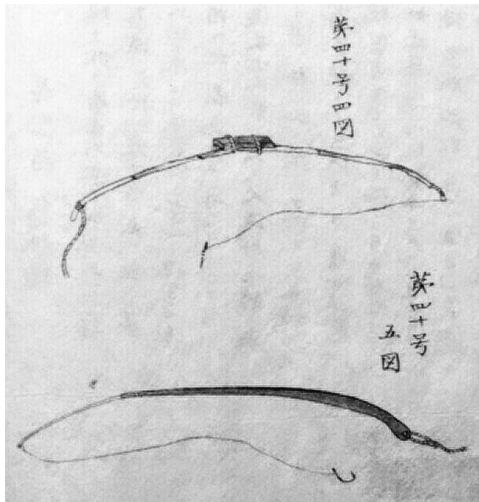 第四十号四図
第四十号
五図